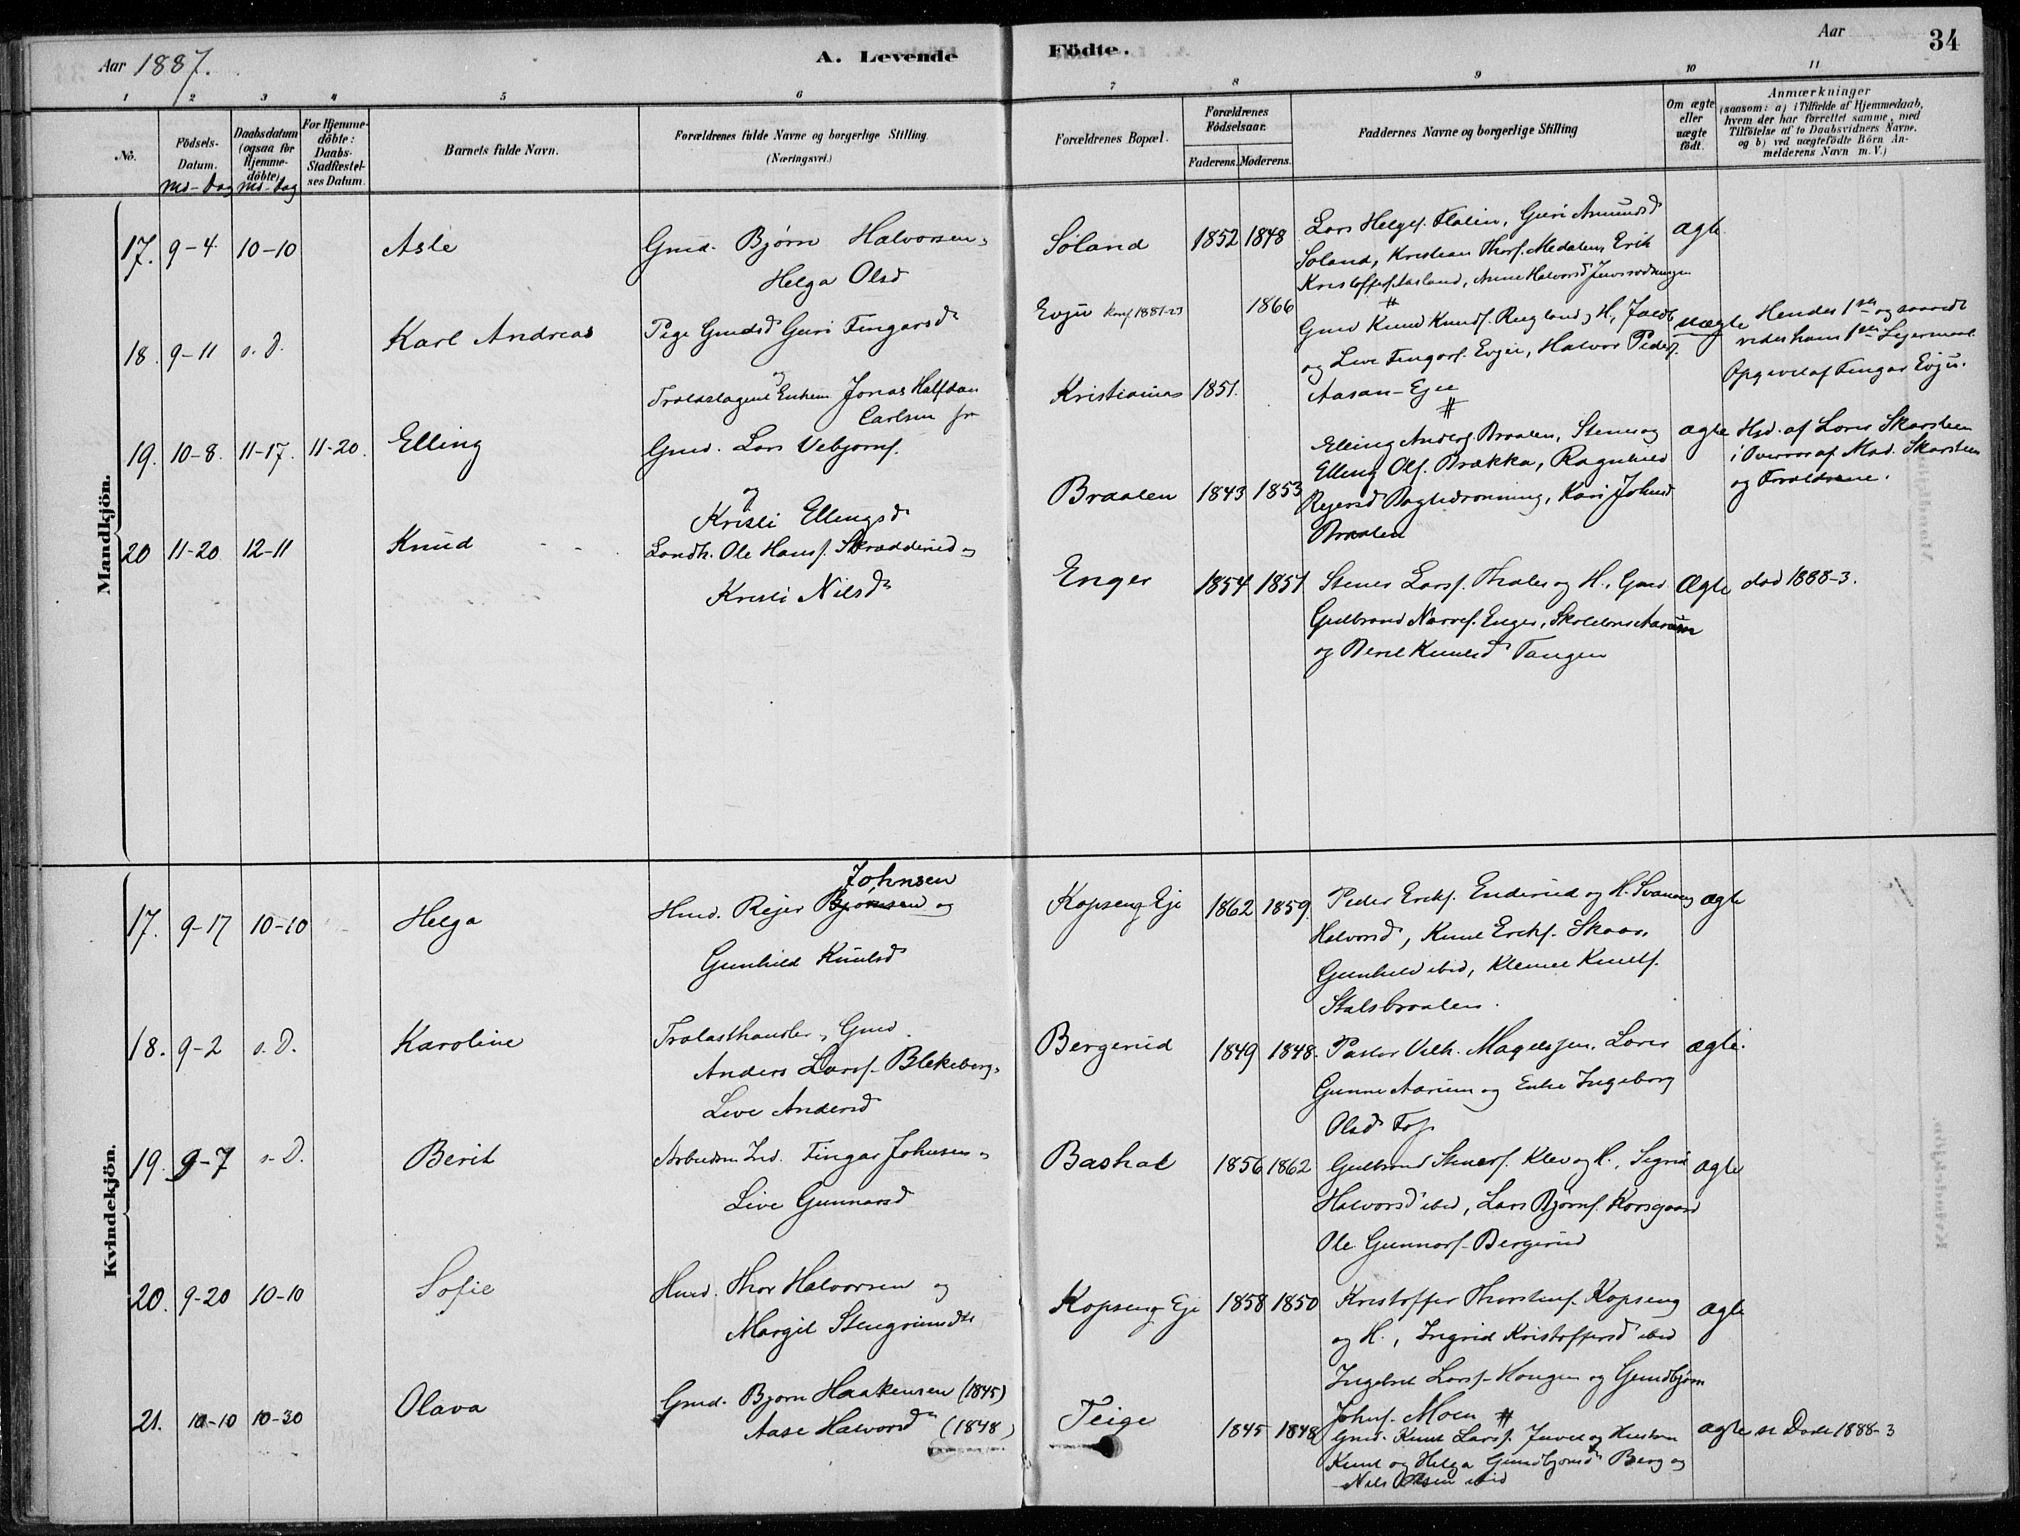 Aar 1887.
A. Levende Födte.
Aar
34
1 2 3 4 5 6 7 8 9 10 11
No.
Födsels-
Datum.
Md- Dag
Daabsdatum
(ogsaa for
Hjemme-
döbte)
Md- Dag
For Hjemme-
döbte:
Daabs-
Stadfæstel-
ses Datum.
Barnets fulde Navn.
Forældrenes fulde Navne og borgerlige Stilling.
(Næringsvei.)
Forældrenes Bopæl.
Forældrenes
Födselsaar.
Faderens. Moderens.
Faddernes Navne og borgerlige Stilling
Om ægte
eller
uægte
födt.
Anmærkninger
(saasom: a) i Tilfælde af Hjemmedaab,
hvem der har forrettet samme, med
Tilföielse af to Daabsvidners Navne,
og b) ved uægtefödte Börn An-
melderens Navn m. V.)
Mandkjön.
17. 9-4 10-10 Asle
Gmd. Bjørn Halvorsen
Helga Olsd
Søland 1852 1848
Lars Helges. Flatin, Guri Amundsd
Søland, Kristian Thors. Medalen, Erik
Kristoffers. Aasland, Anne Halvorsd
ægte
18. 9-11 s. D. Karl Andreas
Pige Gmdsd Guri Fingarsd
og
Enkem Jonas Halfdan
Carlsen
Evju Konf 1881-23 1866
Kristiania 1851.
Gmd Knud Knuds. Rugland og H.,
og Live Fingars. Evju, Halvor Peders.
Aasan-Eje
uægte
Hendes 1ste og
hans 1ste Lejermaal
Opgivet af Fingar Evju.
19. 10-8. 11-17. 11-20. Elling
Gmd. Lars Vebjørns.
og
Kristi Ellingsd
Braaten 1843 1853
Elling Anders. Braaten, Stener og
Elling Ols. Brække, Ragnhild
Rejersd, Kari Johnsd
Braaten
ægte
Hjd. af Lars Skarstein
i Overvær af Mad. Skarstein
og Forældrene.
20 11-20 12-11 Knud
Landh. Ole Hans. Skrædderud og
Kristi Nilsd
Enger 1854 1851
Stener Lars. Tholes og H., Gmd
Gulbrand Narves. Enger, Aarum
og Berit Knudsd Tangen
Ægte
død 1888-3.
Kvindekjön.
17. 9-17 10-10 Helga
Johnsen
Hmd. Rejer Bjørnsen og
Gunhild Knudsd
Kopseng Eje 1862 1859.
Peder Eriks. Enderud og H. Svanaug
Halvorsd, Knud Eriks. Skaar,
Gunhild ibid, Klemet Knuds.
Stalsbraaten.
ægte
18. 9-2 s. D. Karoline
Trælasthandler, Gmd.
Anders Lars. Blekeberg
Live Andersd
Bergerud 1849 1848.
Pastor Vilh. Magelssen, Lars
Gunne Aarum og Enke Ingeborg
Olsd
ægte.
19. 9-7 s. D. Berit
Arbeidsm Ind. Fingar Johnsen
Live Gunnarsd
Bashal 1856 1862
Gulbrand Steners. Klev og H., Sigrid
Halvorsd ibid, Lars Bjørns. Korsgaard
Ole Gunnars. Bergerud
ægte
20. 9-20 10-10 Sofie
Hmd. Thor Halvorsen og
Margit Stengrimsdtr
Kopseng Eje 1858 1850
Kristoffer Thorstens. Kopseng
og H., Ingrid Kristoffersd ibid
Ingebret Lars. Haugen og Gundbjørn
Johns. Moen #
ægte
21. 10-10 10-30 Olava
Gmd. Bjørn Haakensen (1845)
Aase Halvorsd (1848)
Teige 1845 1848
Gmd. Knut Lars. Juvet og Hustru
Knut og Helga Gundbjørnsd Berg og
Nils Olsen ibid
ægte
se Døde 1888-3